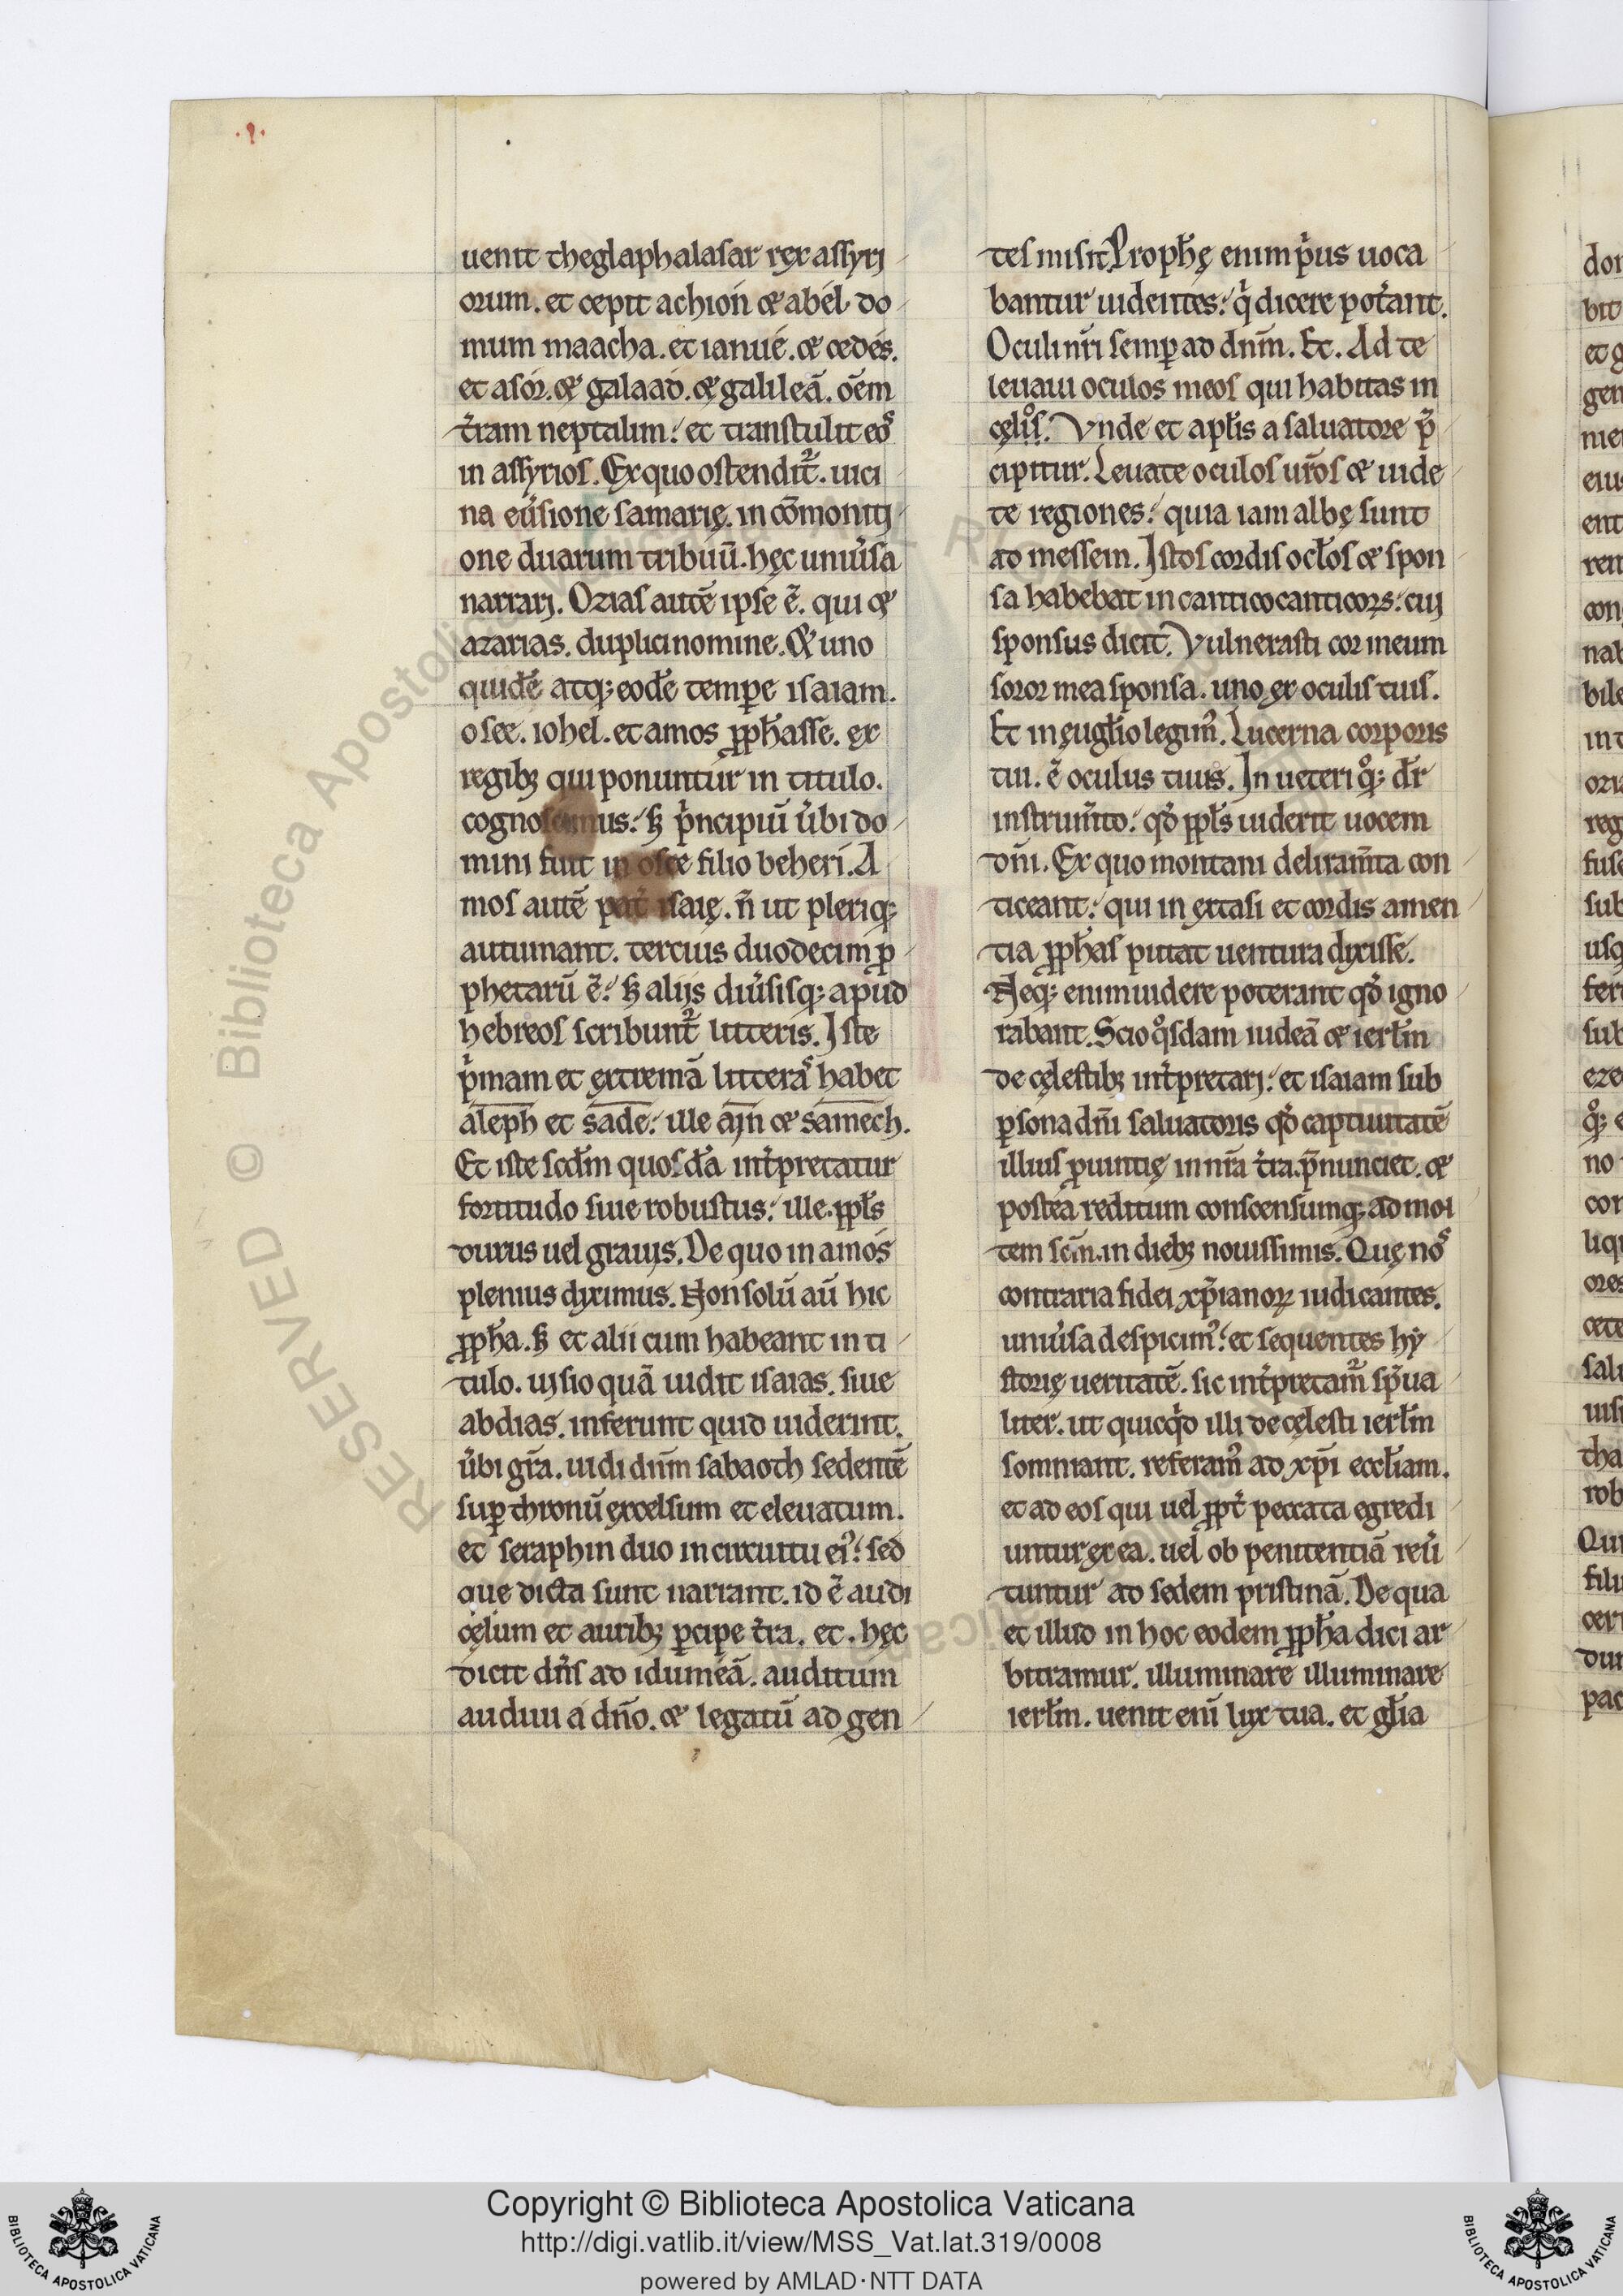 uenit theglaphalasar rex assyri
orum. et cepit achion & abel do
mum maacha. et ianué. & cedés.
et asór. & galaad. & galileã. oẽm
t̓ram neptalim: et transtulit eos
in assyrios. Ex quo ostendit̃. uici
na eu̓sione samarię. in cõmoniti
one duarum tribuũ. hęc uniu̓sa
narrari. Ozias autẽ ipse ẽ. qui &
azarias. duplici nomine. & uno
quidẽ atq; eodẽ temp̱e isaiam.
osee. iohel. et amos p̱ph̃asse. ex
regib; qui ponuntur in titulo.
cognoscimus: s; p̓ncipiũ u̓bi do
mini fuit in osee filio beheri. A
mos autẽ pat̓ isaię. ñ ut pleriq;
autumant. tercius duodecim p̱
phetarũ ẽ: s; aliis diu̓sisq; apud
hebreos scribunt̃ litteris. Iste
p̓mam et extremã litterã habet
aleph et sade: ille ain & samech.
Et iste scd̃m quosdã int̓pretatur
fortitudo siue robustus: ille. pp̃ls
durus uel grauis. De quo in amos
plenius diximus. Non solũ aũ hic
p̱ph̃a. s; et alii cum habeant in ti
tulo. uisio quã uidit isaias. siue
abdias. inferunt quid uiderint.
u̓bi gr̃a. uidi dñm sabaoth sedentẽ
sup̱ thronũ excelsum et eleuatum.
et seraphin duo in circuitu ei᾿: sed
que dicta sunt narrant. id ẽ audi
cęlum et aurib; p̱cipe t̓ra. et. hęc
dicit dñs ad idumeã. auditum
audiui a dño. & legatũ ad gen
tes misit. Proph̃ę enim p̓us uoca
bantur uidentes: q̓ dicere pot̓ant.
Oculi nr̃i semp̱ ad dñm. Et. Ad te
leuaui oculos meos qui habitas in
cęlis. Vnde et apl̃is a saluatore p̃
cipitur. Leuate oculos ur̃os & uide
te regiones: quia iam albę sunt
ad messem. Istos cordis ocl̃os & spon
sa habebat in cantico canticorꝝ: cui
sponsus dicit. Vulnerasti cor meum
soror mea sponsa. uno ex oculis tuis.
Et in eugl̃io legim᾿. Lucerna corporis
tui. ẽ oculus tuus. In ueteri q°q; dr̃
instrum̃to: qd̓ pp̃ls uiderit uocem
dñi. Ex quo montani deliram̃ta con
ticeant: qui in extasi et cordis amen
tia p̱ph̃as putat uentura dixisse.
Neq; enim uidere poterant qd̓ igno
rabant. Scio q°sdam iudeã & ierl̃m
de cęlestib; int̓pretari: et isaiam sub
p̱sona dñi saluatoris qd̓ captiuitatẽ
illius p̱uintię in nr̃a t̓ra. p̃nunciet. &
postea reditum conscensumq; ad mon
tem scm̃. in dieb; nouissimis. Quę nos
contraria fidei xp̃ianoꝝ iudicantes.
uniu̓sa despicim᾿: et sequentes hy
storię ueritatẽ. sic int̓pretam̃ sp̃ua
liter. ut quicqd̓ illi de cęlesti ierl̃m
somniant. referam᾿ ad xp̃i eccl̃iam.
et ad eos qui uel p̱pt̓ peccata egredi
untur ex ea. uel ob penitentiã reu̓
tuntur ad sedem pristinã. De qua
et illud in hoc eodem p̱ph̃a dici ar
bitramur. illuminare illuminare
ierl̃m. uenit enĩ lux tua. et gl̃ia
Copyright © Biblioteca Apostolica Vaticana
http://digi.vatlib.it/view/MSS_Vat.lat.319/0008
powered by AMLAD·NTT DATA